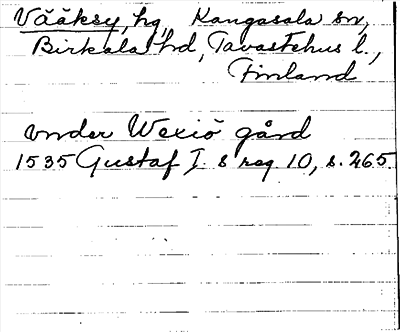 Vääksy, hg, Kangasala sn,
Birkala hd, Tavastehus l.,
Finland
under Wexiö gård
1535 Gustaf I. s reg 10, s. 265.